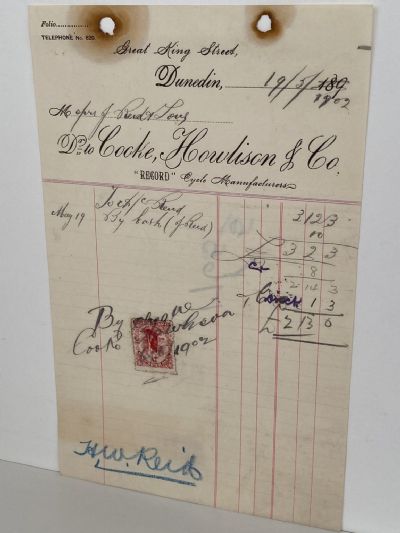 Folio
TELEPHONE No. 620.
Great King Street,
Dunedin, 19/5/189
1902
Messrs J Reid & Sons
Dr. to Cooke, Howlison & Co.
"RECORD" Cycle Manufacturers
To a/c Reid 3 12 3
May 19 By cash (J Reid) 10
£ 3 2 3
8
2 14 3
1 3
£ 2 13 0
By cheque
Cooke Howlison
1902
H.W. Reid